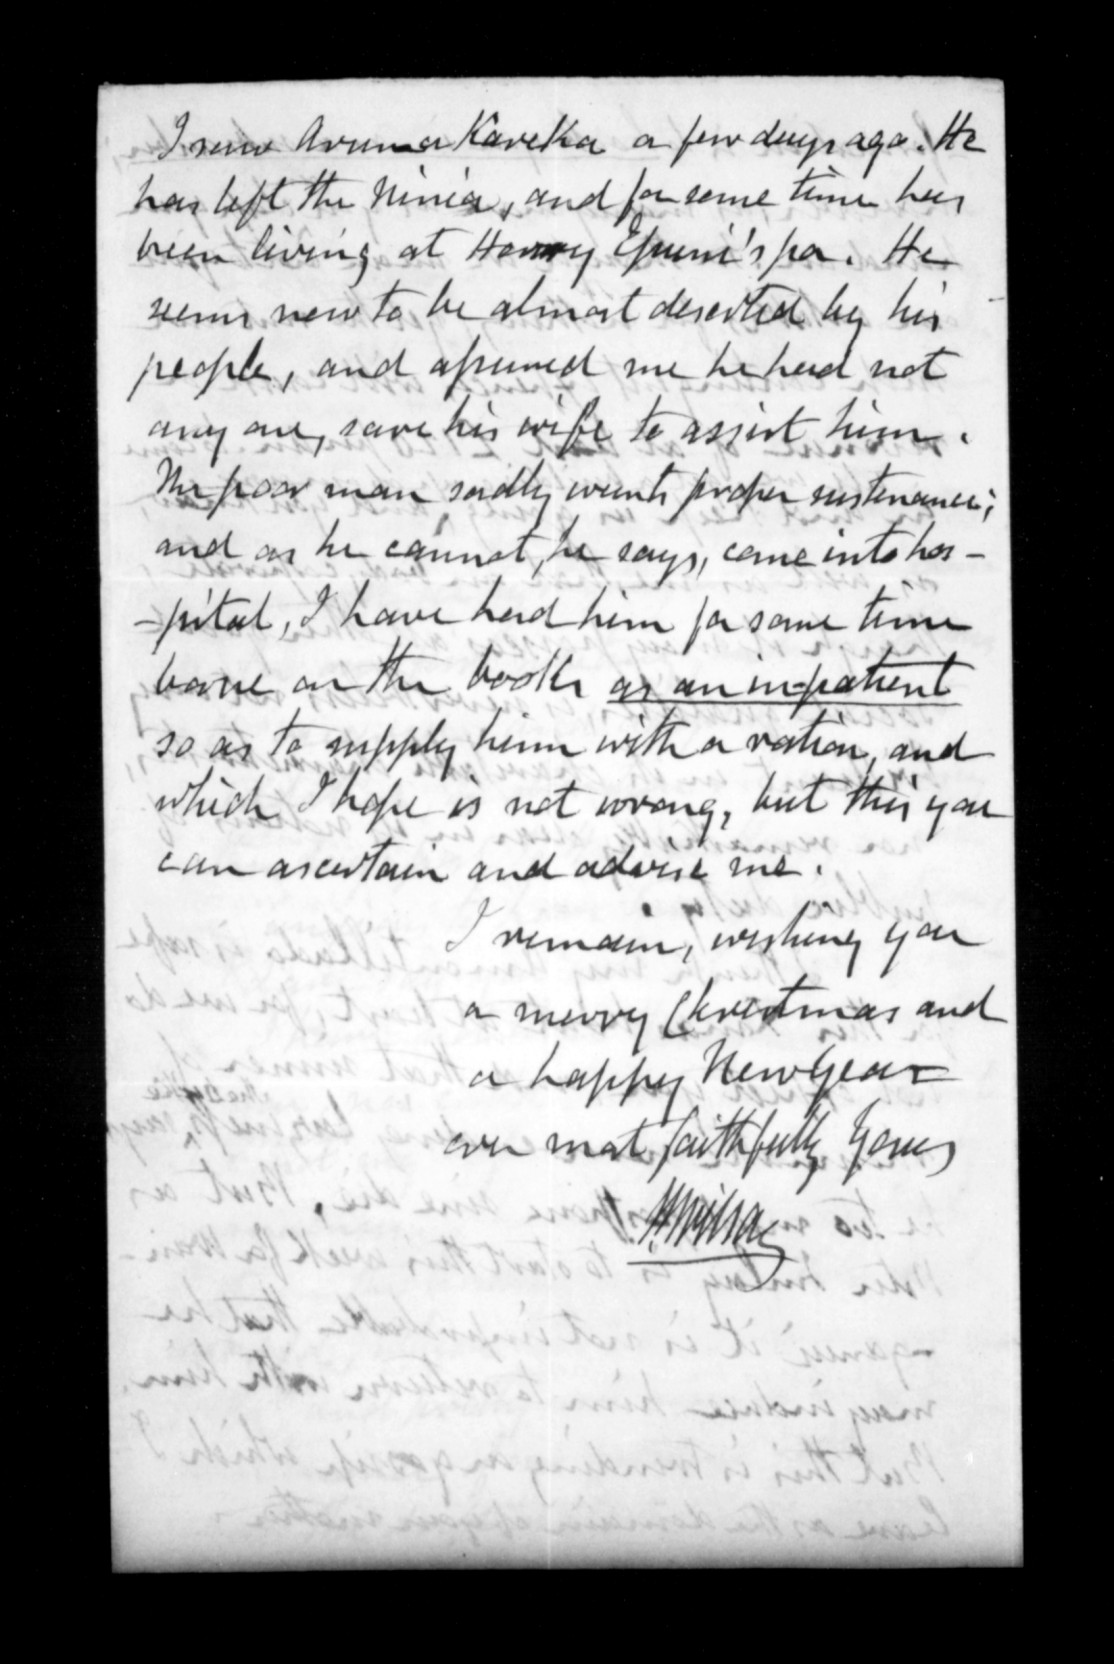 I saw Aruma Kareka a few days ago. He
has left the Ninia, and for some time has
been living at Honry Epuni's pa. He
seems now to be almost deserted by his
people, and assured me he had not
any one, save his wife to assist him.
The poor man sadly wants proper sustenance;
and as he cannot, he says, come into hos-
-pital, I have had him for some time
borne on the books as an in-patient
so as to supply him with a ration, and
which I hope is not wrong, but this you
can ascertain and advise me.
I remain, wishing you
a merry Christmas and
a happy New Year
ever most faithfully Yours